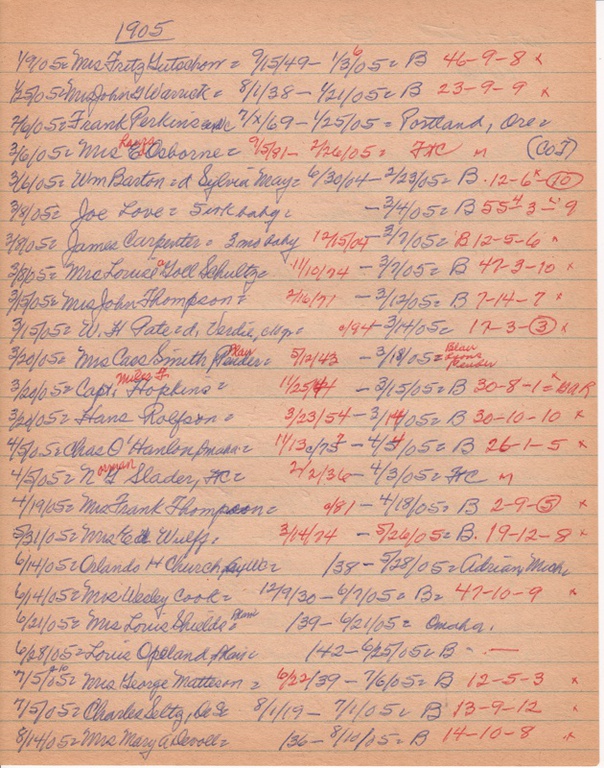 1905
1/9/05 = Mrs Fritz Gutschow = 9/15/49 - 1/3/05 = B 46-9-8 x
1/25/05 = Mrs John G Warrick = 8/1/38 - 1/21/05 = B 23-9-9 x
2/6/05 = Frank Perkins = 7/x/69 - 1/25/05 = Portland, Ore =
3/6/05 = Mrs Osborne = 9/5/81 - 2/26/05 = FtC m (COJ)
3/6/05 = Wm Barton = d Sylvia May = 6/30/04 - 2/23/05 = B 12-6 x -10
3/8/05 = Joe Love = 5 wk baby = - 3/4/05 = B 55 3 - 9
3/8/05 = James Carpenter = 3 mo baby 12/15/04 - 3/7/05 = B 12-5-6 x
3/8/05 = Mrs Louise Goll Schultz = 11/10/74 - 3/7/05 = B 47-3-10 x
3/15/05 = Mrs John Thompson = 2/16/71 - 3/12/05 = B 7-14-7 x
3/15/05 = W. H Pate = d, Verdie, = 0/94 - 3/14/05 = 17-3-3 x
3/20/05 = Mrs Cass Smith, Pender = Blair 5/12/43 - 3/18/05 = Blair Lyons Pender
3/20/05 = Capt. Miles Hopkins = 11/25/44 - 3/15/05 = B 30-8-1 = x GAR
3/22/05 = Hans Rolfson = 3/23/54 - 3/14/05 = B 30-10-10 x
4/5/05 = Chas O'Hanlon, Omaha = - 4/4/05 = B 26-1-5 x
4/5/05 = Norman G Slader, FtC = 2/2/36 - 4/3/05 = FtC m
4/19/05 = Mrs Frank Thompson = 0/81 - 4/18/05 = B 2-9-5 x
5/31/05 = Mrs Wulff, 3/14/74 - 5/26/05 = B. 19-12-8 x
6/14/05 = Orlando H Church, = /38 - 5/28/05 = Adrian, Mich
6/14/05 = Mrs Wesley Cook = 12/9/30 - 6/7/05 = B = 47-10-9 x
6/21/05 = Mrs Louis Shields = /39 - 6/21/05 = Omaha.
6/28/05 = Louis Opeland, Blair = /42 - 6/25/05 = B - —
7/5/05 = Mrs George Matteson = 6/22/39 - 7/6/05 = B 12-5-3 x
7/5/05 = Charles Seltz, = 8/1/19 - 7/1/05 = B 13-9-12 x
8/14/05 = Mrs Mary A Devoll = /36 - 8/10/05 = B 14-10-8 x